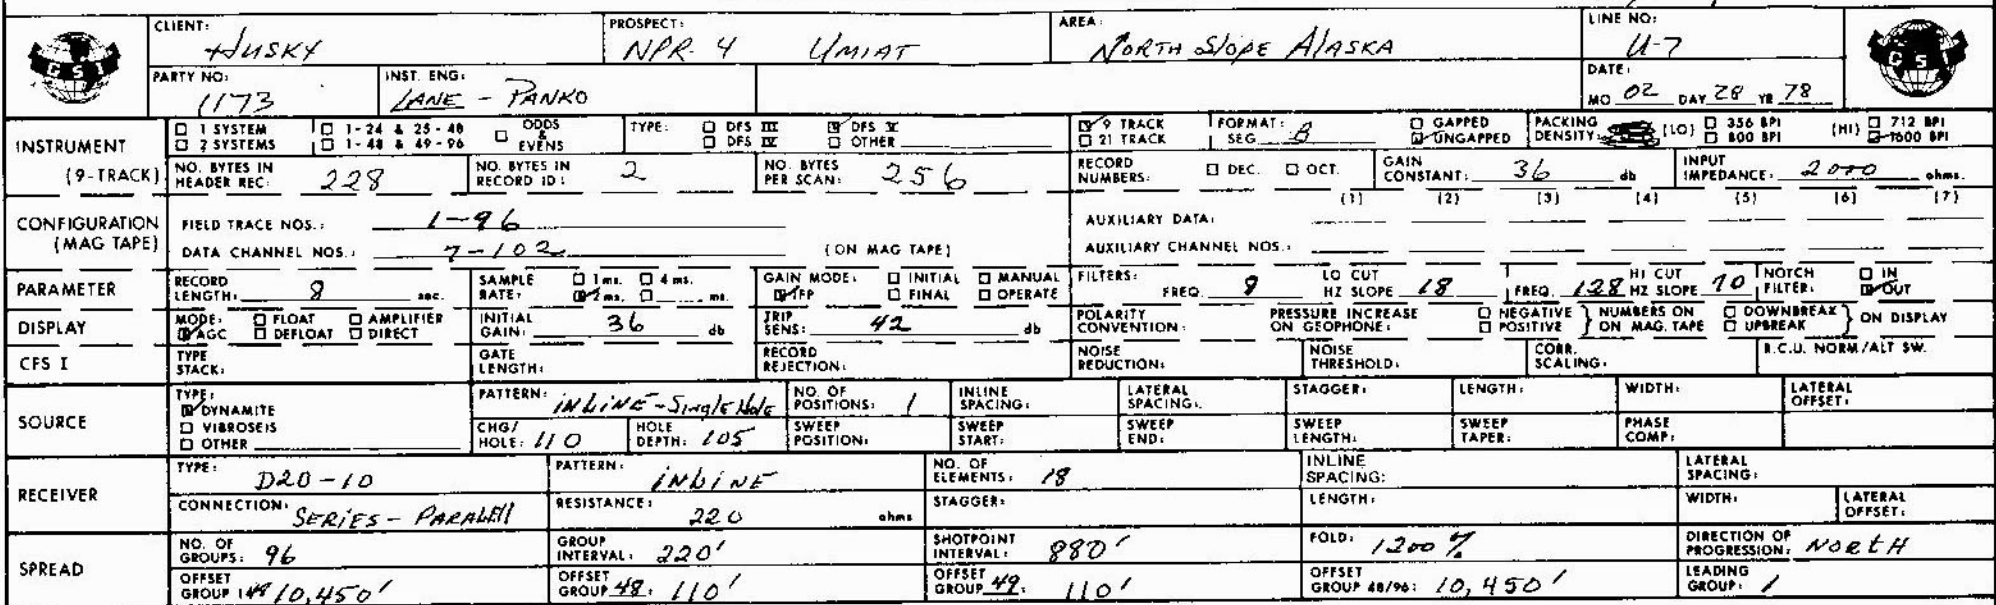 CLIENT: HUSKY PROSPECT: NPR-4 UMIAT AREA: NORTH SLOPE ALASKA LINE NO: U-7
GSI GSI
PARTY NO: 1173 INST. ENG: LANE - PANKO DATE: MO 02 DAY 28 YR 78
INSTRUMENT □ 1 SYSTEM □ 1-24 & 25-48 □ ODDS & EVENS TYPE: □ DFS III ☑ DFS V ☑ 9 TRACK FORMAT: SEG B □ GAPPED PACKING DENSITY: (LO) □ 356 BPI (HI) □ 712 BPI
□ 2 SYSTEMS □ 1-48 & 49-96 □ DFS IV □ OTHER □ 21 TRACK ☑ UNGAPPED □ 800 BPI ☑ 1600 BPI
(9-TRACK) NO. BYTES IN HEADER REC: 228 NO. BYTES IN RECORD ID: 2 NO. BYTES PER SCAN: 256 RECORD NUMBERS: □ DEC. □ OCT. GAIN CONSTANT: 36 db INPUT IMPEDANCE: 2000 ohms.
CONFIGURATION (MAG TAPE) FIELD TRACE NOS.: 1-96 AUXILIARY DATA: (1) (2) (3) (4) (5) (6) (7)
DATA CHANNEL NOS.: 7-102 (ON MAG TAPE) AUXILIARY CHANNEL NOS.:
PARAMETER RECORD LENGTH: 8 sec. SAMPLE RATE: □ 1 ms. □ 4 ms. ☑ 2 ms. □ ms. GAIN MODE: □ INITIAL □ MANUAL ☑ IFP □ FINAL □ OPERATE FILTERS: FREQ. 8 LO CUT HZ SLOPE 18 FREQ. 128 HI CUT HZ SLOPE 70 NOTCH FILTER: □ IN ☑ OUT
DISPLAY MODE: □ FLOAT □ AMPLIFIER ☑ AGC □ DEFLOAT □ DIRECT INITIAL GAIN: 36 db TRIP SENS: 42 db POLARITY CONVENTION: PRESSURE INCREASE ON GEOPHONE: □ NEGATIVE □ POSITIVE } NUMBERS ON MAG. TAPE □ DOWNBREAK □ UPBREAK } ON DISPLAY
CFS I TYPE STACK: GATE LENGTH: RECORD REJECTION: NOISE REDUCTION: NOISE THRESHOLD: CORR. SCALING: R.C.U. NORM/ALT SW.
SOURCE TYPE: ☑ DYNAMITE □ VIBROSEIS □ OTHER PATTERN: INLINE-Single Hole NO. OF POSITIONS: 1 INLINE SPACING: LATERAL SPACING: STAGGER: LENGTH: WIDTH: LATERAL OFFSET:
CHG/HOLE: 110 HOLE DEPTH: 105 SWEEP POSITION: SWEEP START: SWEEP END: SWEEP LENGTH: SWEEP TAPER: PHASE COMP:
RECEIVER TYPE: D20-10 PATTERN: INLINE NO. OF ELEMENTS: 18 INLINE SPACING: LATERAL SPACING:
CONNECTION: SERIES - PARALEll RESISTANCE: 220 ohms STAGGER: LENGTH: WIDTH: LATERAL OFFSET:
SPREAD NO. OF GROUPS: 96 GROUP INTERVAL: 220' SHOTPOINT INTERVAL: 880' FOLD: 1200 % DIRECTION OF PROGRESSION: NORTH
OFFSET GROUP 10,450' OFFSET GROUP 48: 110' OFFSET GROUP 49: 110' OFFSET GROUP 48/96: 10,450' LEADING GROUP: 1